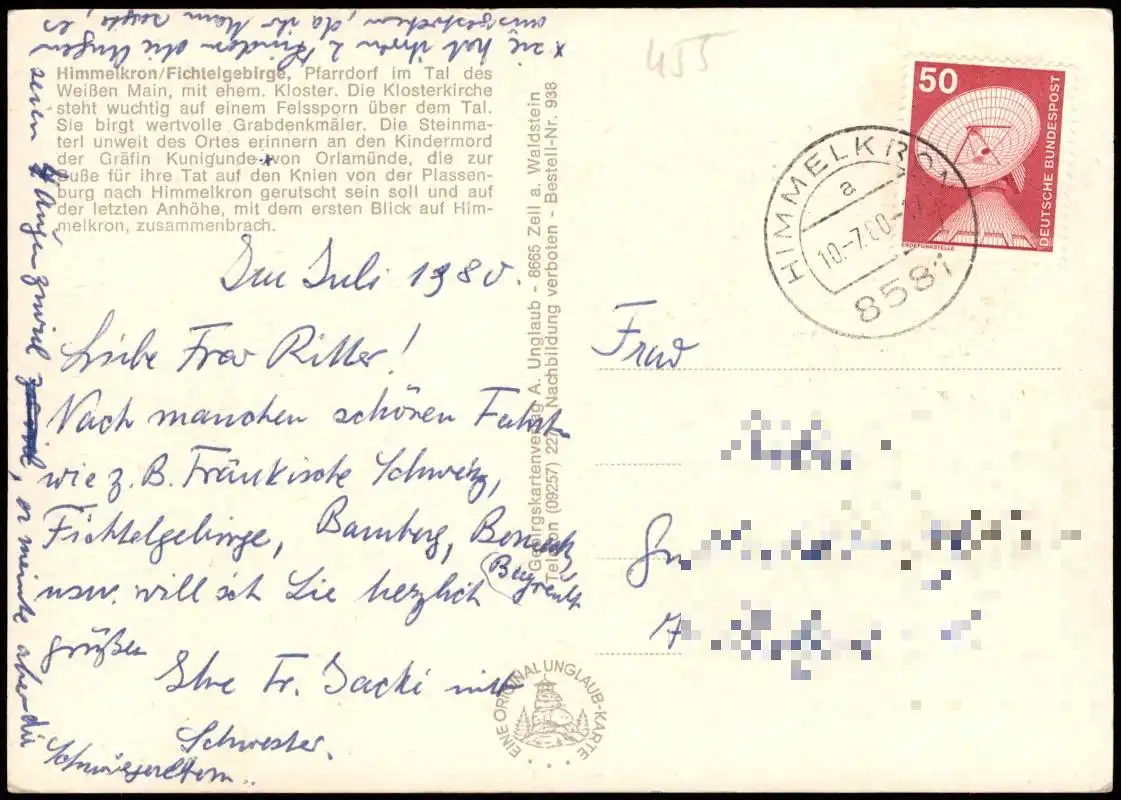 x sie hat ihren 2 Kindern die Augen
ausgestochen, da ihr Mann sagte, es
seien 4 Augen zuviel, er meinte aber die
Schwiegereltern..
Himmelkron/Fichtelgebirge, Pfarrdorf im Tal des
Weißen Main, mit ehem. Kloster. Die Klosterkirche
steht wuchtig auf einem Felssporn über dem Tal.
Sie birgt wertvolle Grabdenkmäler. Die Steinma-
terl unweit des Ortes erinnern an den Kindermord
der Gräfin Kunigunde x von Orlamünde, die zur
Buße für ihre Tat auf den Knien von der Plassen-
burg nach Himmelkron gerutscht sein soll und auf
der letzten Anhöhe, mit dem ersten Blick auf Him-
melkron, zusammenbrach.
Im Juli 1980.
Liebe Frau Ritter!
Nach manchen schönen Fahrt
wie z. B. Fränkische Schweiz,
Fichtelgebirge, Bamberg, Berneck,
(Bayreuth
usw. will ich Sie herzlich
grüßen
Ihre Fr. Jacki mit
Schwester.
Gebirgskartenverlag A. Unglaub - 8665 Zell a. Waldstein
Telefon (09257) 227 Nachbildung verboten - Bestell-Nr. 938
EINE ORIGINAL UNGLAUB-KARTE
455
50
DEUTSCHE BUNDESPOST
ERDEFUNKSTELLE
HIMMELKRON
a
10.-7.80-17
8581
Frau